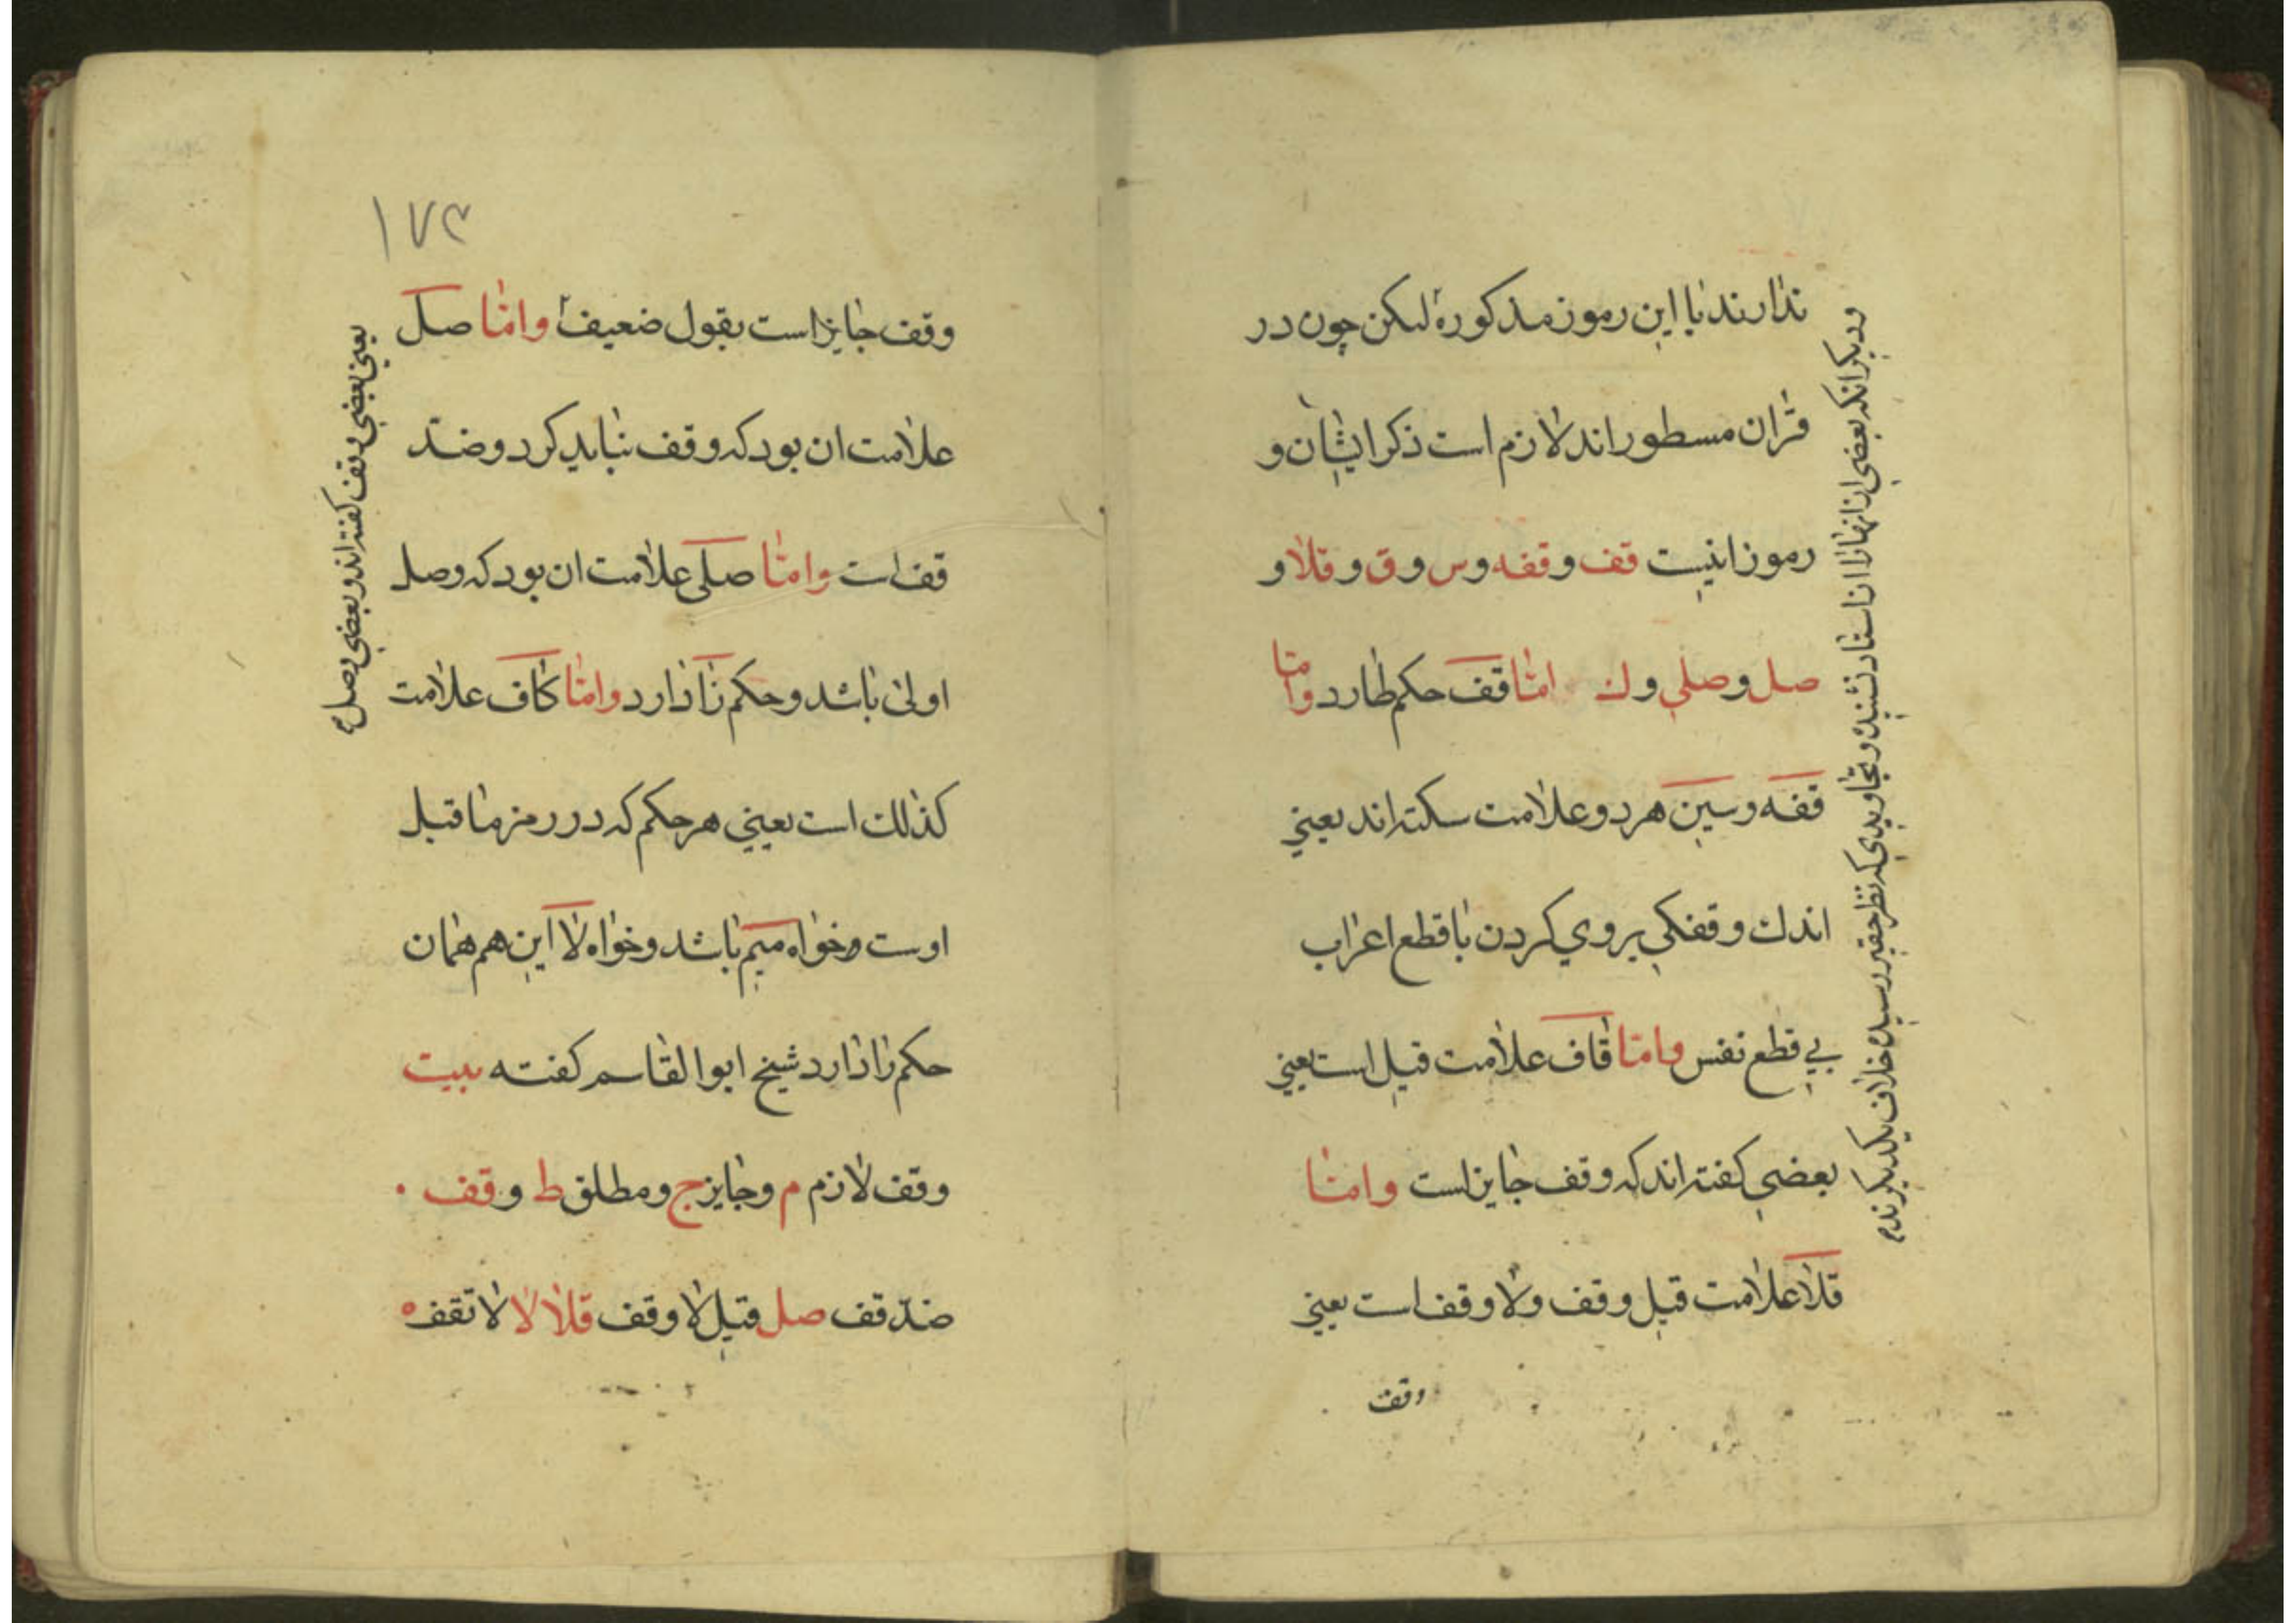 ندارند با این رموز مذکوره لیکن چون در
قرآن مسطور اند لازم است ذکر ایشان و
رموز اینست قف وقفه وس وق وقلا و
صل وصلی وك اما قف حکم طا دارد واما
قفه وسین هر دو علامت سکته اند یعنی
اندك وقفکی بر وی کردن با قطع اعراب
بی قطع نفس واما قاف علامت قیل است یعنی
بعضی کفته اند که وقف جایز است واما
قلا علامت قیل وقف ولا وقف است یعنی
وقف
ودیکر انکه بعضی از انها را از استاد نشنیده وتجاویدی که بنظر حقیر رسیده خلاف یکدیکرند
۱۷۳
وقف جایز است بقول ضعیف واما صل
علامت ان بود که وقف نباید کرد وضد
قف است واما صلی علامت ان بود که وصل
اولی باشد وحکم زا دارد واما کاف علامت
کذلك است یعنی هر حکم که در رمز ما قبل
اوست خواه میم باشد وخواه لا این هم همان
حکم را دارد شیخ ابو القاسم کفته بیت
وقف لازم م وجایز ج ومطلق ط وقف
ضد قف صل قیل لا وقف قلا لا لا تقف
یعنی بعضی وقف کفته اند وبعضی وصل